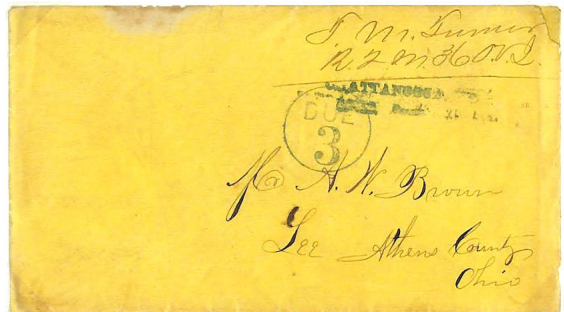 T. M. Turner
R. Q. M. 36 O.V.I.
CHATTANOOGA
DUE
3
Mr A. W. Brown
Lee Athens County
Ohio